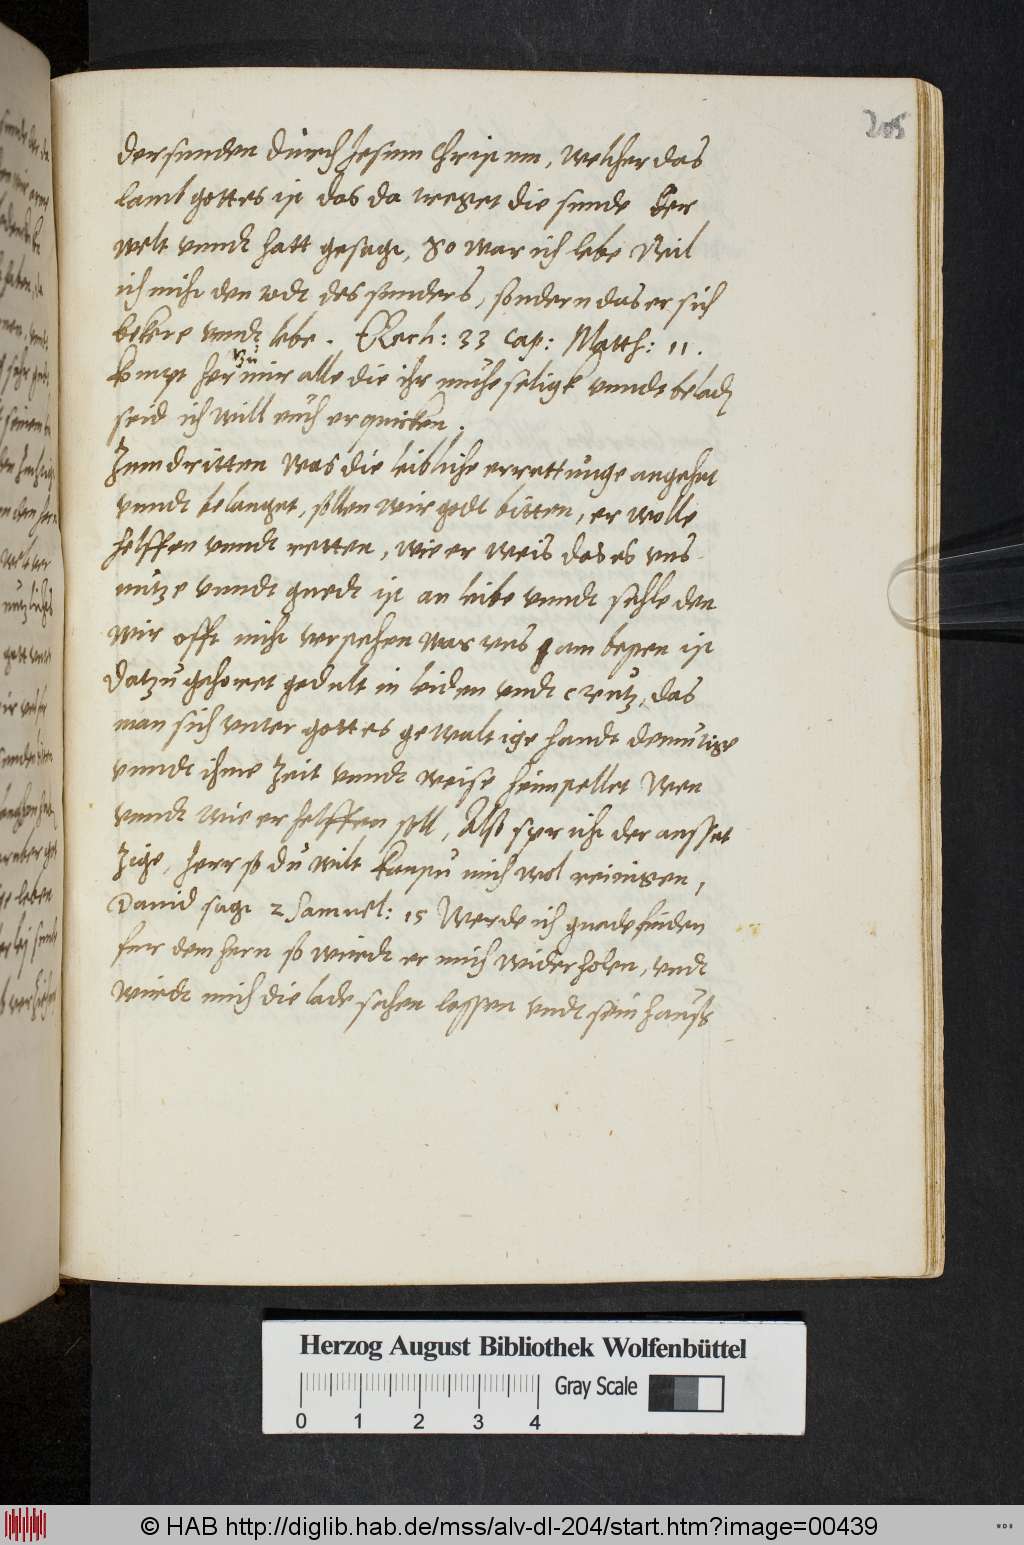 205
der sunden durch Jesum Christum, welcher das
lamb gottes ist das da treget die sunde der
welt vnndt hatt gesagt, So war ich lebe Will
ich nicht den todt des sunders, sondern das er sich
bekere vnndt lebe. Ezech: 33 Cap: Matth: 11.
kompt her zu mir alle die ihr müheseligk vnndt beladen
seid ich will euch erquicken.
Zum dritten Was die leibliche errettunge angehet
vnndt belanget, sollen wir godt bitten, er wolle
helffen vnndt retten, wie er weis das es vns
nütze vnndt guedt ist an leibe vnndt sehle den
wir offt nicht verstehen was vns am besten ist
Datzu gehoret gedult in leiden vndt creutz, das
man sich vnter gottes gewaltige handt demütige
vnndt ihme Zeit vnndt weise heimstellet Wen
vnndt wie er helffen soll, Also spricht der aussat
zige, Herr so du wilt kanstu mich wol reinigen,
Dauid sagt 2 Samuel: 15 Werde ich gnade finden
fur dem hern so würdt er mich widerholen, vndt
würdt mich die lade sehen lassen vndt sein hauß
Herzog August Bibliothek Wolfenbüttel
Gray Scale
0 1 2 3 4
© HAB http://diglib.hab.de/mss/alv-dl-204/start.htm?image=00439